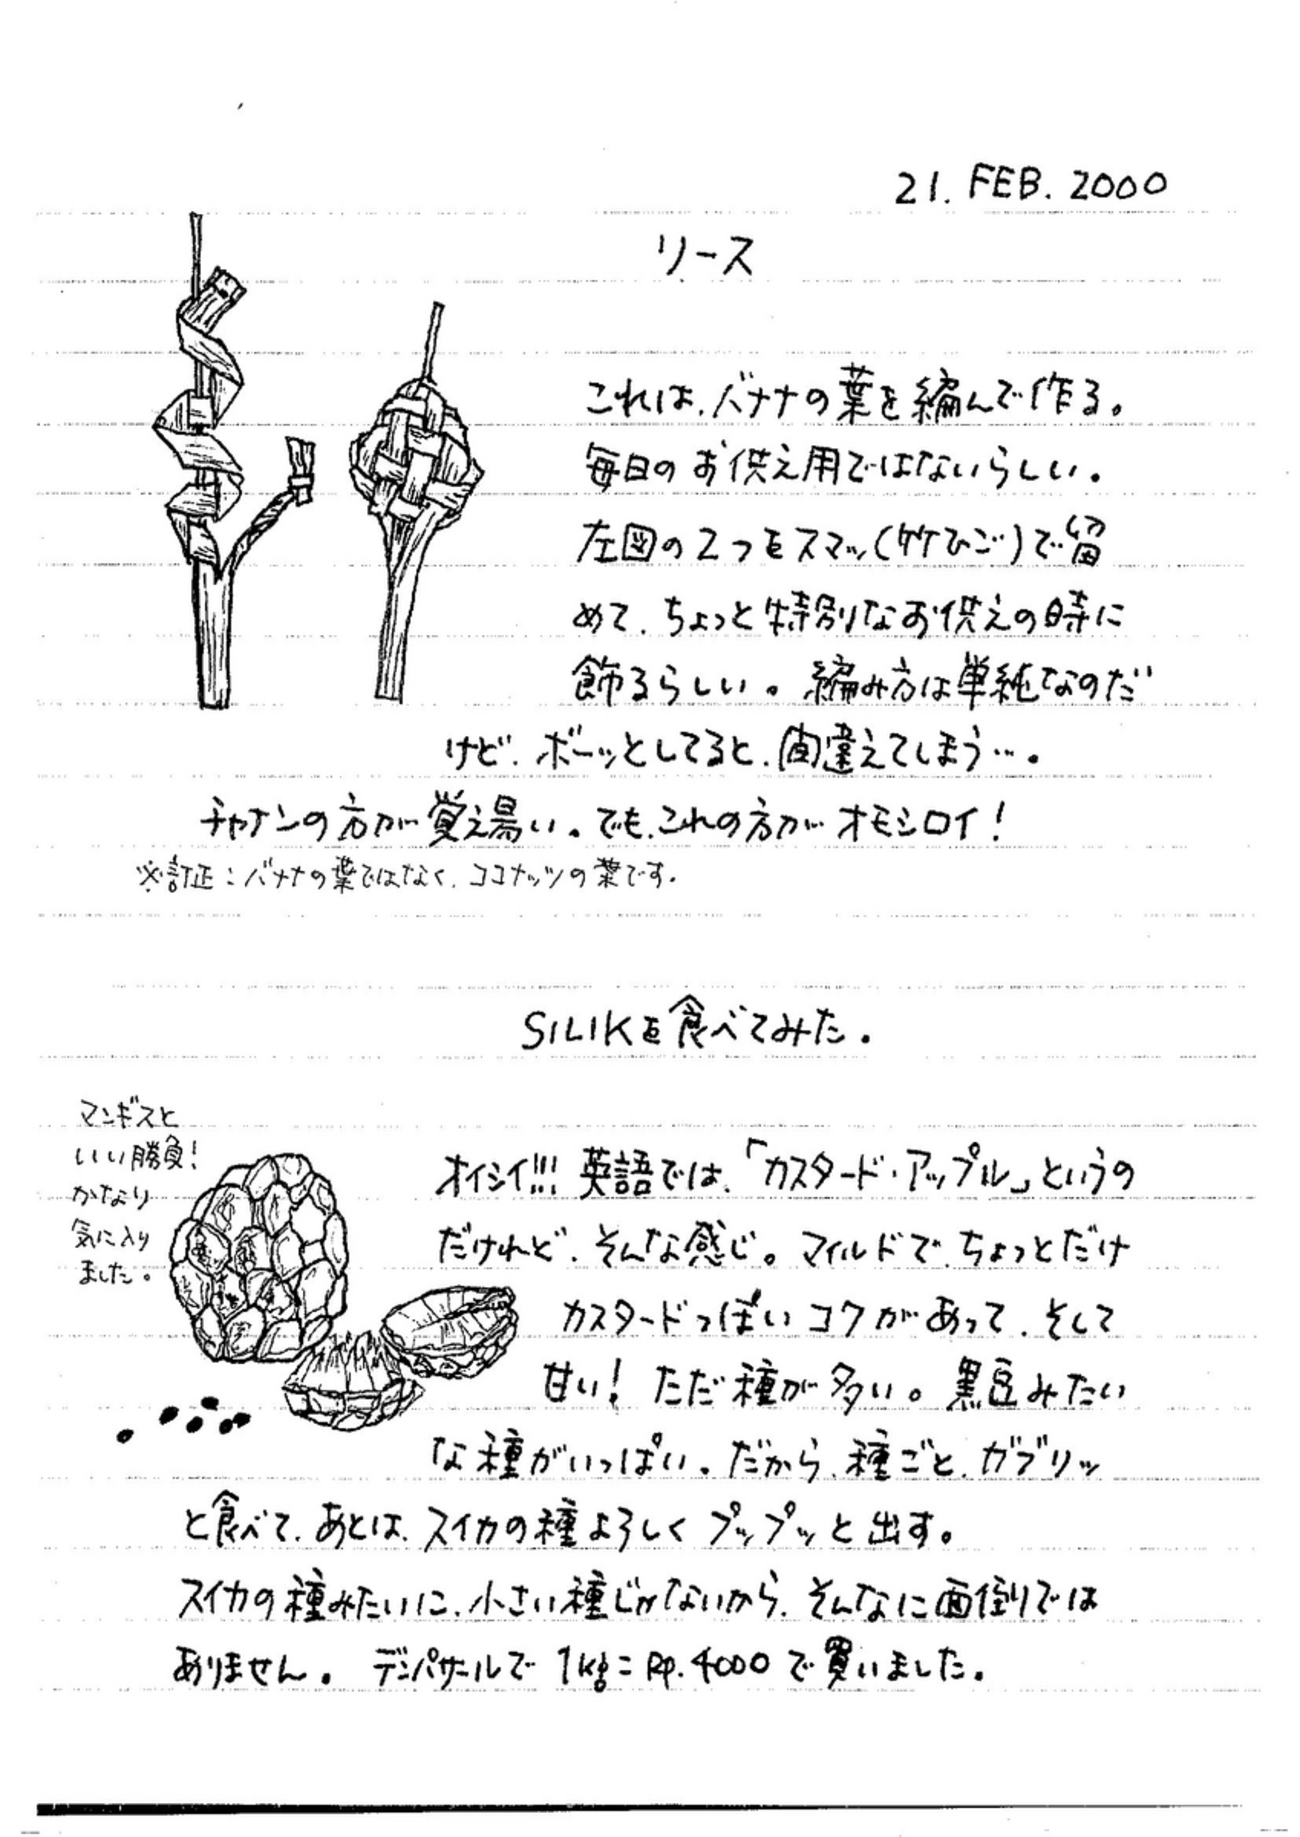 21. FEB. 2000
リース
これは、バナナの葉を編んで作る。
毎日のお供え用ではないらしい。
左図の2つをスマッ(竹ひご)で留
めて、ちょっと特別なお供えの時に
飾るらしい。編み方は単純なのだ
けど、ボーッとしてると、間違えてしまう…。
チャナンの方が覚え易い。でも、これの方がオモシロイ!
※訂正:バナナの葉ではなく、ココナッツの葉です。
SILIKを食べてみた。
マンギスと
いい勝負!
かなり
気に入り
ました。
オイシイ!!! 英語では、「カスタード・アップル」というの
だけれど、そんな感じ。マイルドで、ちょっとだけ
カスタードっぽいコクがあって、そして
甘い! ただ種が多い。黒豆みたい
な種がいっぱい。だから、種ごと、ガブリッ
と食べて、あとは、スイカの種よろしくプップッと出す。
スイカの種みたいに、小さい種じゃないから、そんなに面倒では
ありません。 デンパサールで 1kg=Rp.4000で買いました。